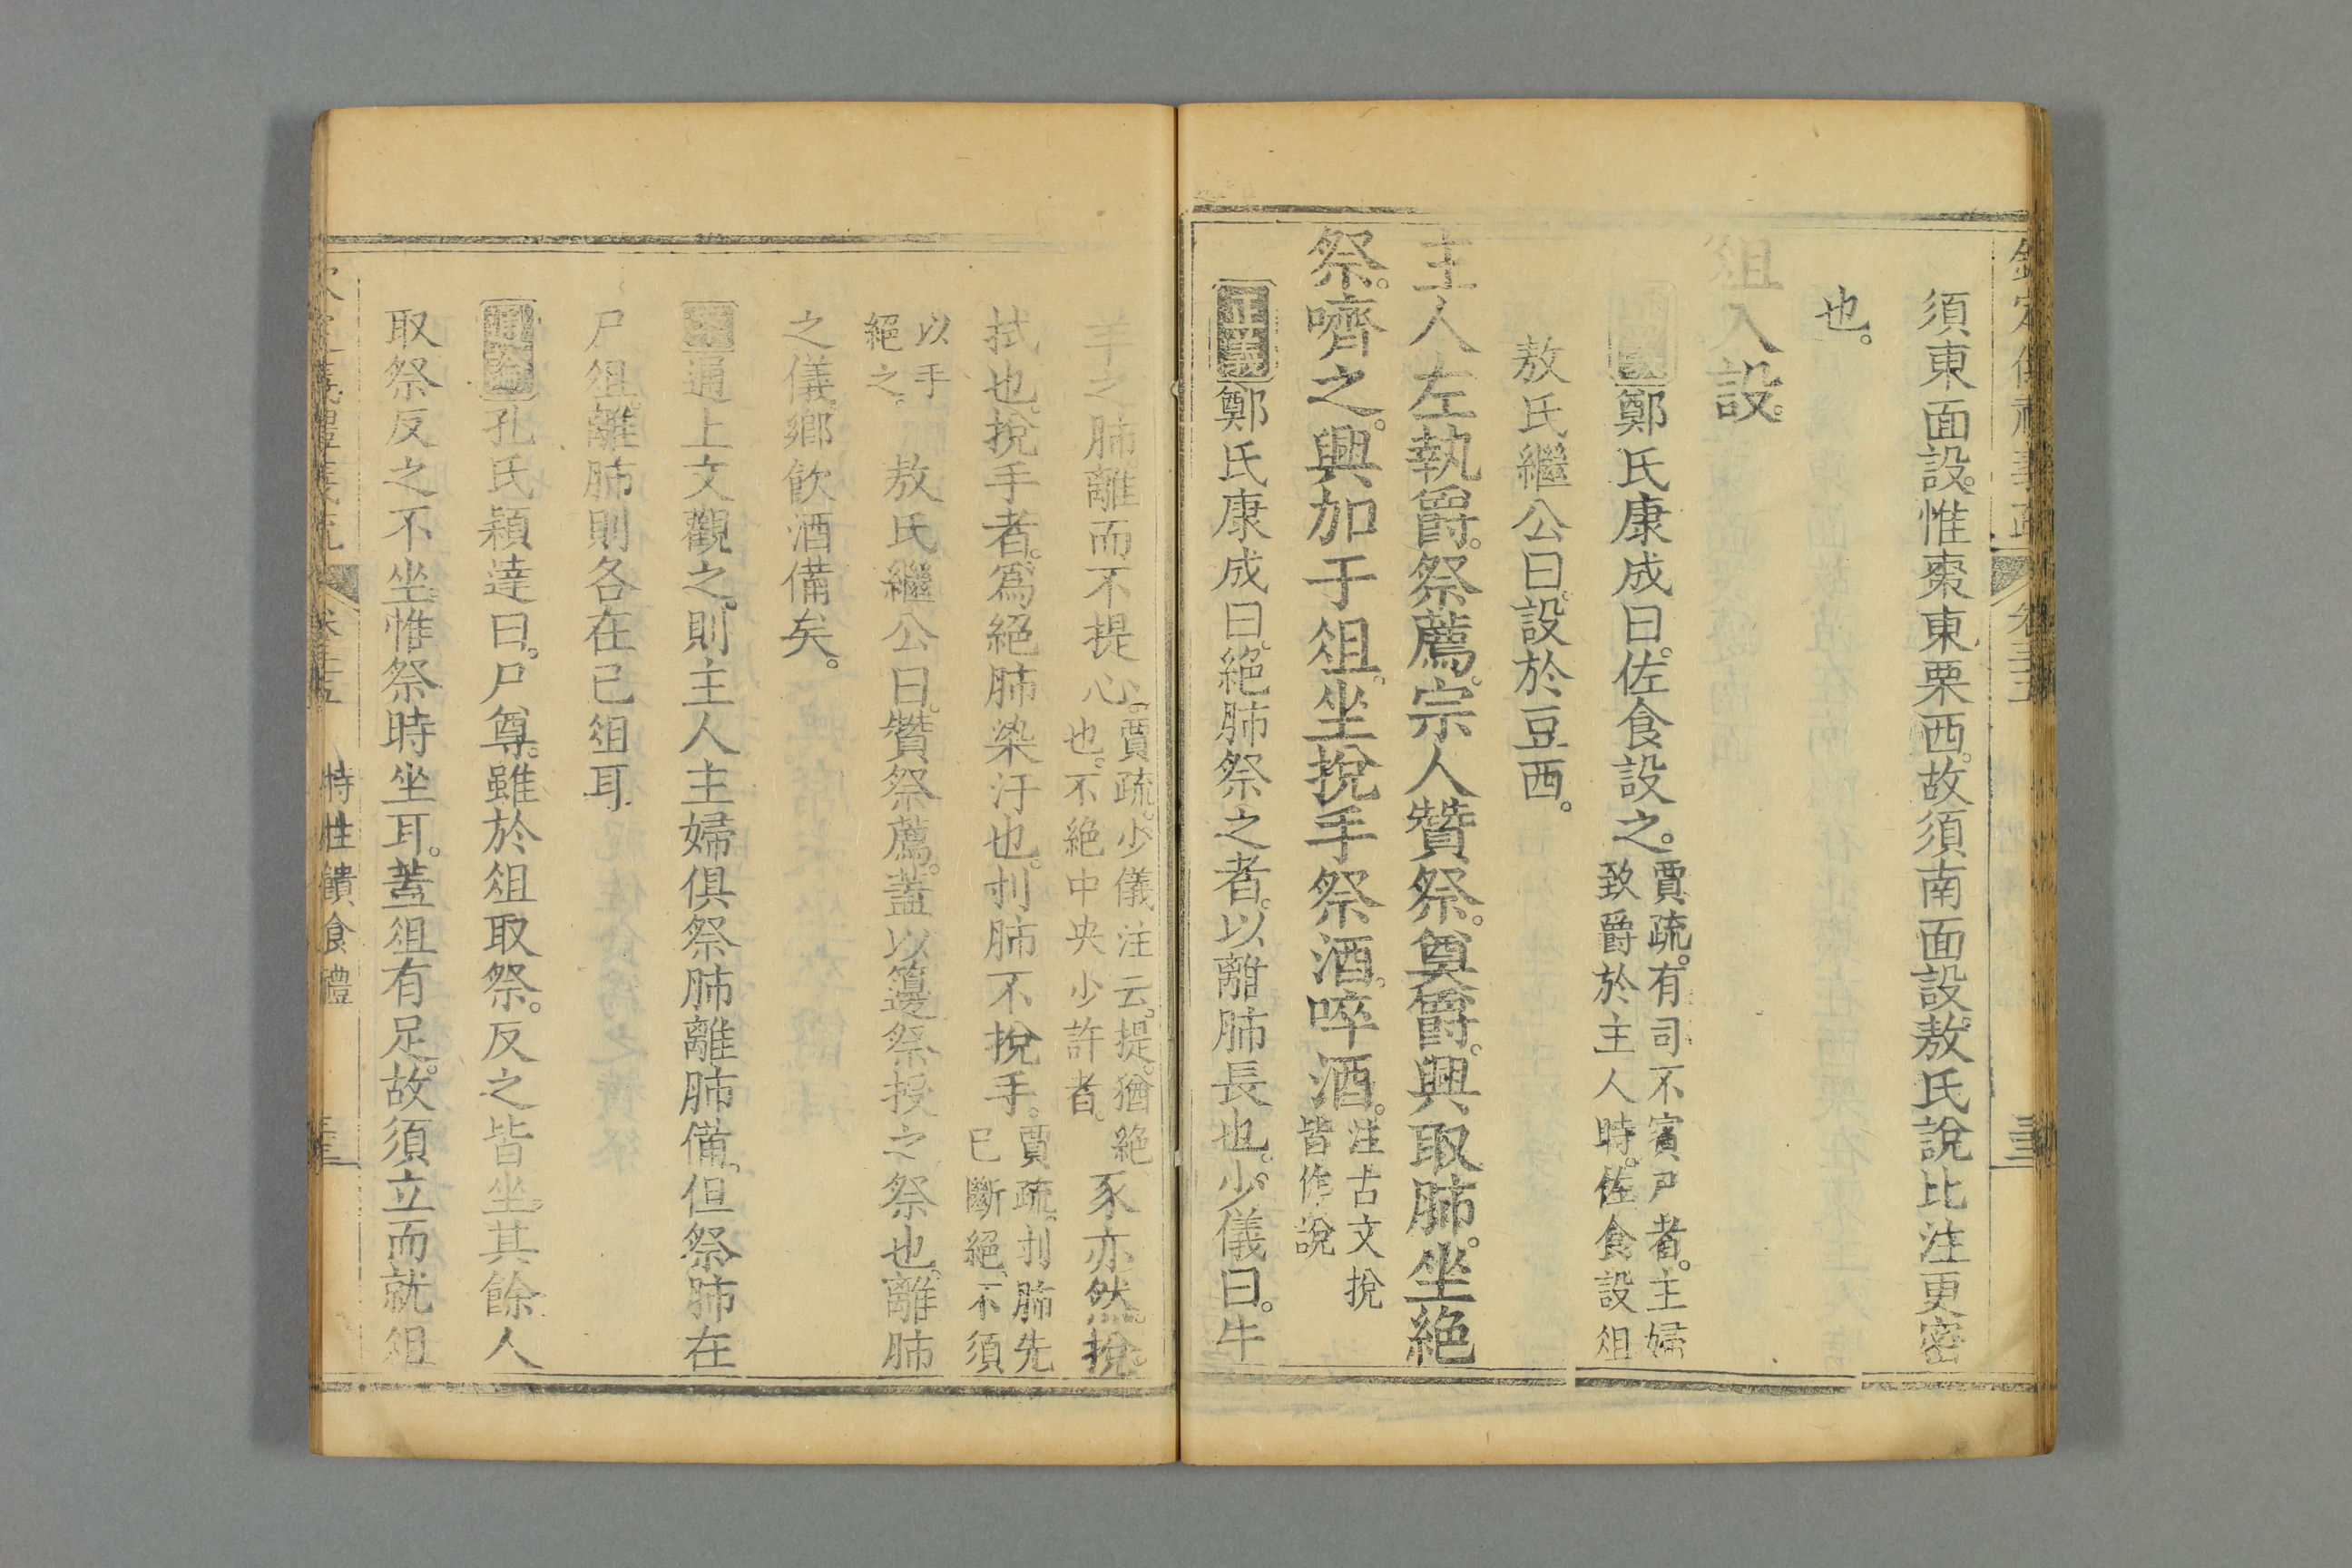 欽定儀禮義疏 卷三五 三
須東面設惟棗東栗西故須南面設敖氏說比注更密
也
俎入設
鄭氏康成曰佐食設之賈疏有司不賓尸者主婦
致爵於主人時佐食設俎
敖氏繼公曰設於豆西
主人左執爵祭薦宗人贊祭奠爵興取肺坐絕
祭嚌之興加于俎坐挩手祭酒啐酒注古文挩
皆作說
正義鄭氏康成曰絕肺祭之者以離肺長也少儀曰牛
羊之肺離而不提心賈疏少儀注云提猶絕
也不絕中央少許者
豕亦然挩
拭也挩手者為絕肺染汙也刌肺不挩手賈疏刌肺先
已斷絕不須
以手
絕之
敖氏繼公曰贊祭薦蓋以籩祭授之祭也離肺
之儀鄉飲酒備矣
案通上文觀之則主人主婦俱祭肺離肺備但祭肺在
尸俎離肺則各在己俎耳
通論孔氏穎達曰尸尊雖於俎取祭反之皆坐其餘人
取祭反之不坐惟祭時坐耳蓋俎有足故須立而就俎
特牲饋食禮